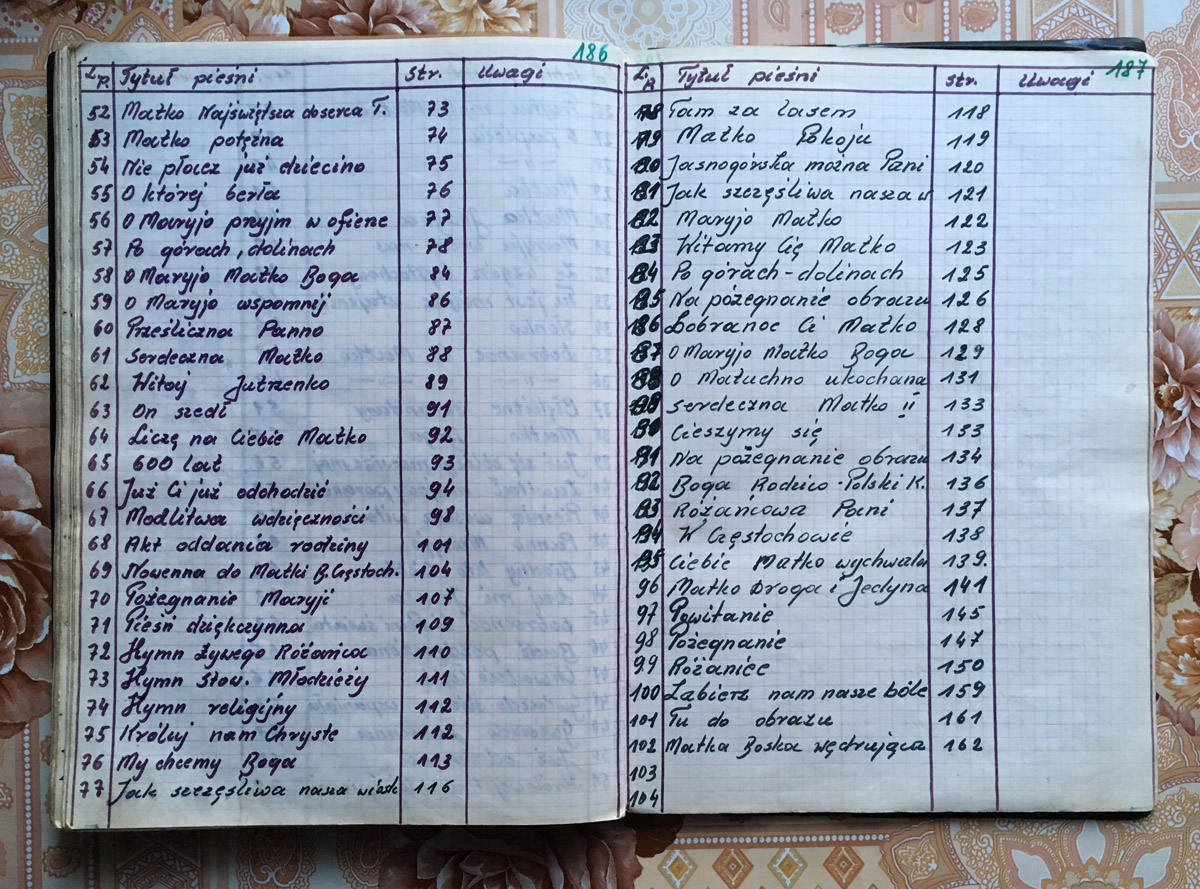 186
L.p. Tytuł pieśni Str. Uwagi
52 Matko Najświętsza do serca T. 73
53 Matko potężna 74
54 Nie płacz już dziecino 75
55 O której berła 76
56 O Maryjo przyjm w ofierze 77
57 Po górach, dolinach 78
58 O Maryjo Matko Boga 84
59 O Maryjo wspomnij 86
60 Prześliczna Panno 87
61 Serdeczna Matko 88
62 Witaj Jutrzenko 89
63 On szedł 91
64 Liczę na Ciebie Matko 92
65 600 lat 93
66 Już Ci już odchodzić 94
67 Modlitwa wdzięczności 98
68 Akt oddania rodziny 101
69 Nowenna do Matki B. Częstoch. 104
70 Pożegnanie Maryji 107
71 Pieśń dziękczynna 109
72 Hymn Żywego Różańca 110
73 Hymn Stow. Młodzieży 111
74 Hymn religijny 112
75 Króluj nam Chryste 112
76 My chcemy Boga 113
77 Jak szczęśliwa nasza wiosk 116
187
L.p. Tytuł pieśni Str. Uwagi
78 Tam za lasem 118
79 Matko Pokoju 119
80 Jasnogórska można Pani 120
81 Jak szczęśliwa nasza w 121
82 Maryjo Matko 122
83 Witamy Cię Matko 123
84 Po górach - dolinach 125
85 Na pożegnanie obrazu 126
86 Dobranoc Ci Matko 128
87 O Maryjo Matko Boga 129
88 O Matuchno ukochana 131
89 Serdeczna Matko II 133
90 Cieszymy się 133
91 Na pożegnanie obrazu 134
92 Boga Rodzico - Polski K. 136
93 Różańcowa Pani 137
94 W Częstochowie 138
95 Ciebie Matko wychwala 139.
96 Matko Droga i Jedyna 141
97 Powitanie 145
98 Pożegnanie 147
99 Różaniec 150
100 Zabierz nam nasze bóle 159
101 Tu do obrazu 161
102 Matka Boska wędrująca 162
103
104